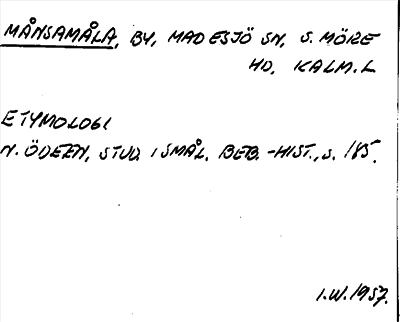 MÅNSAMÅLA, BY, MADESJÖ SN, S. MÖRE
HD, KALM. L
ETYMOLOGI
N. ÖDEEN, STUD. I SMÅL. BEB.-HIST., S. 185.
I.W. 1957.